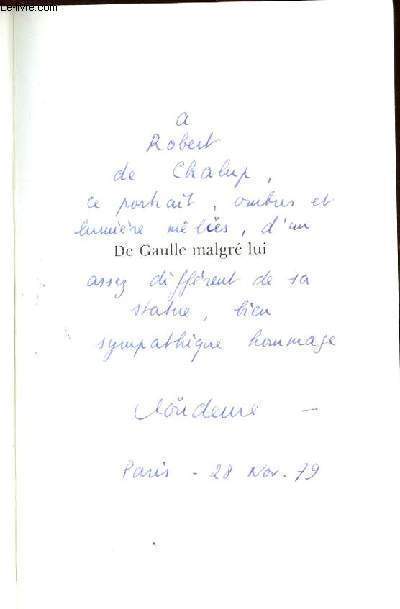 LE-LIVRE.COM
a
Robert
de Chalup,
ce portrait, ombres et
lumière mêlées, d'un
De Gaulle malgré lui
assez différent de sa
statue, bien
sympathique hommage
Paris - 28 Nov. 79